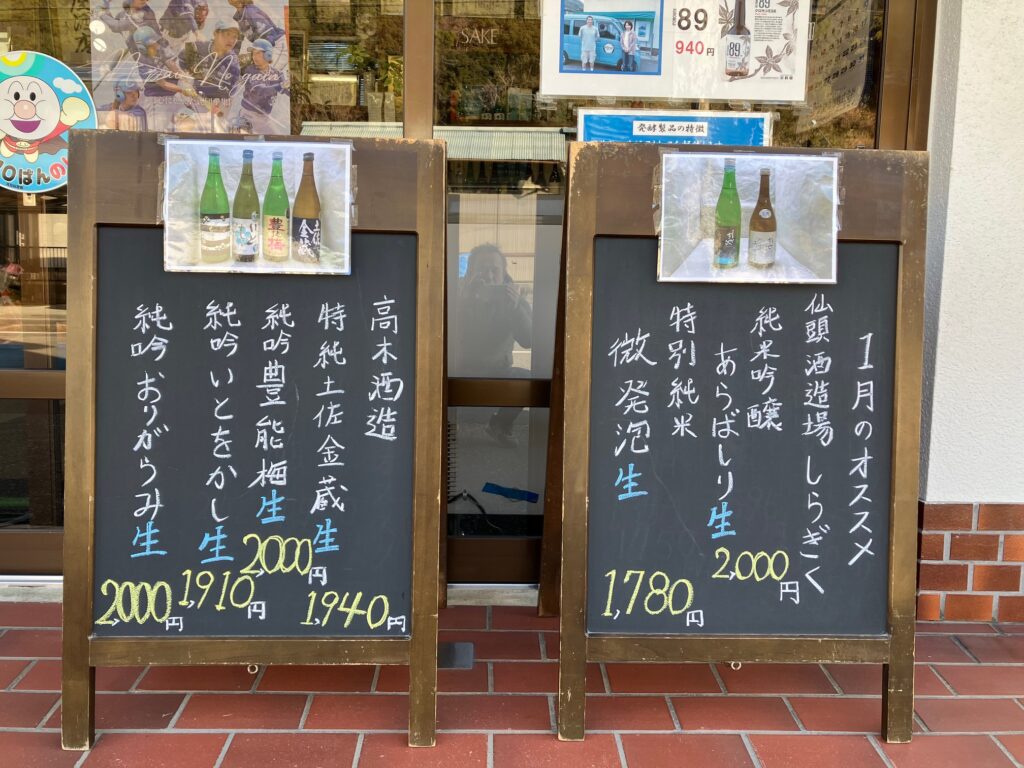 SAKE
89
940円
89
発酵製品の特徴
ろはんの
豊の梅
土佐金蔵
1月のオススメ
仙頭酒造場しらぎく
純米吟醸
あらばしり生
2,000円
特別純米
微発泡生
1,780円
高木酒造
特純土佐金蔵生
1,940円
純吟豊能梅生
2,000円
純吟いとをかし生
1,910円
純吟おりがらみ生
2,000円